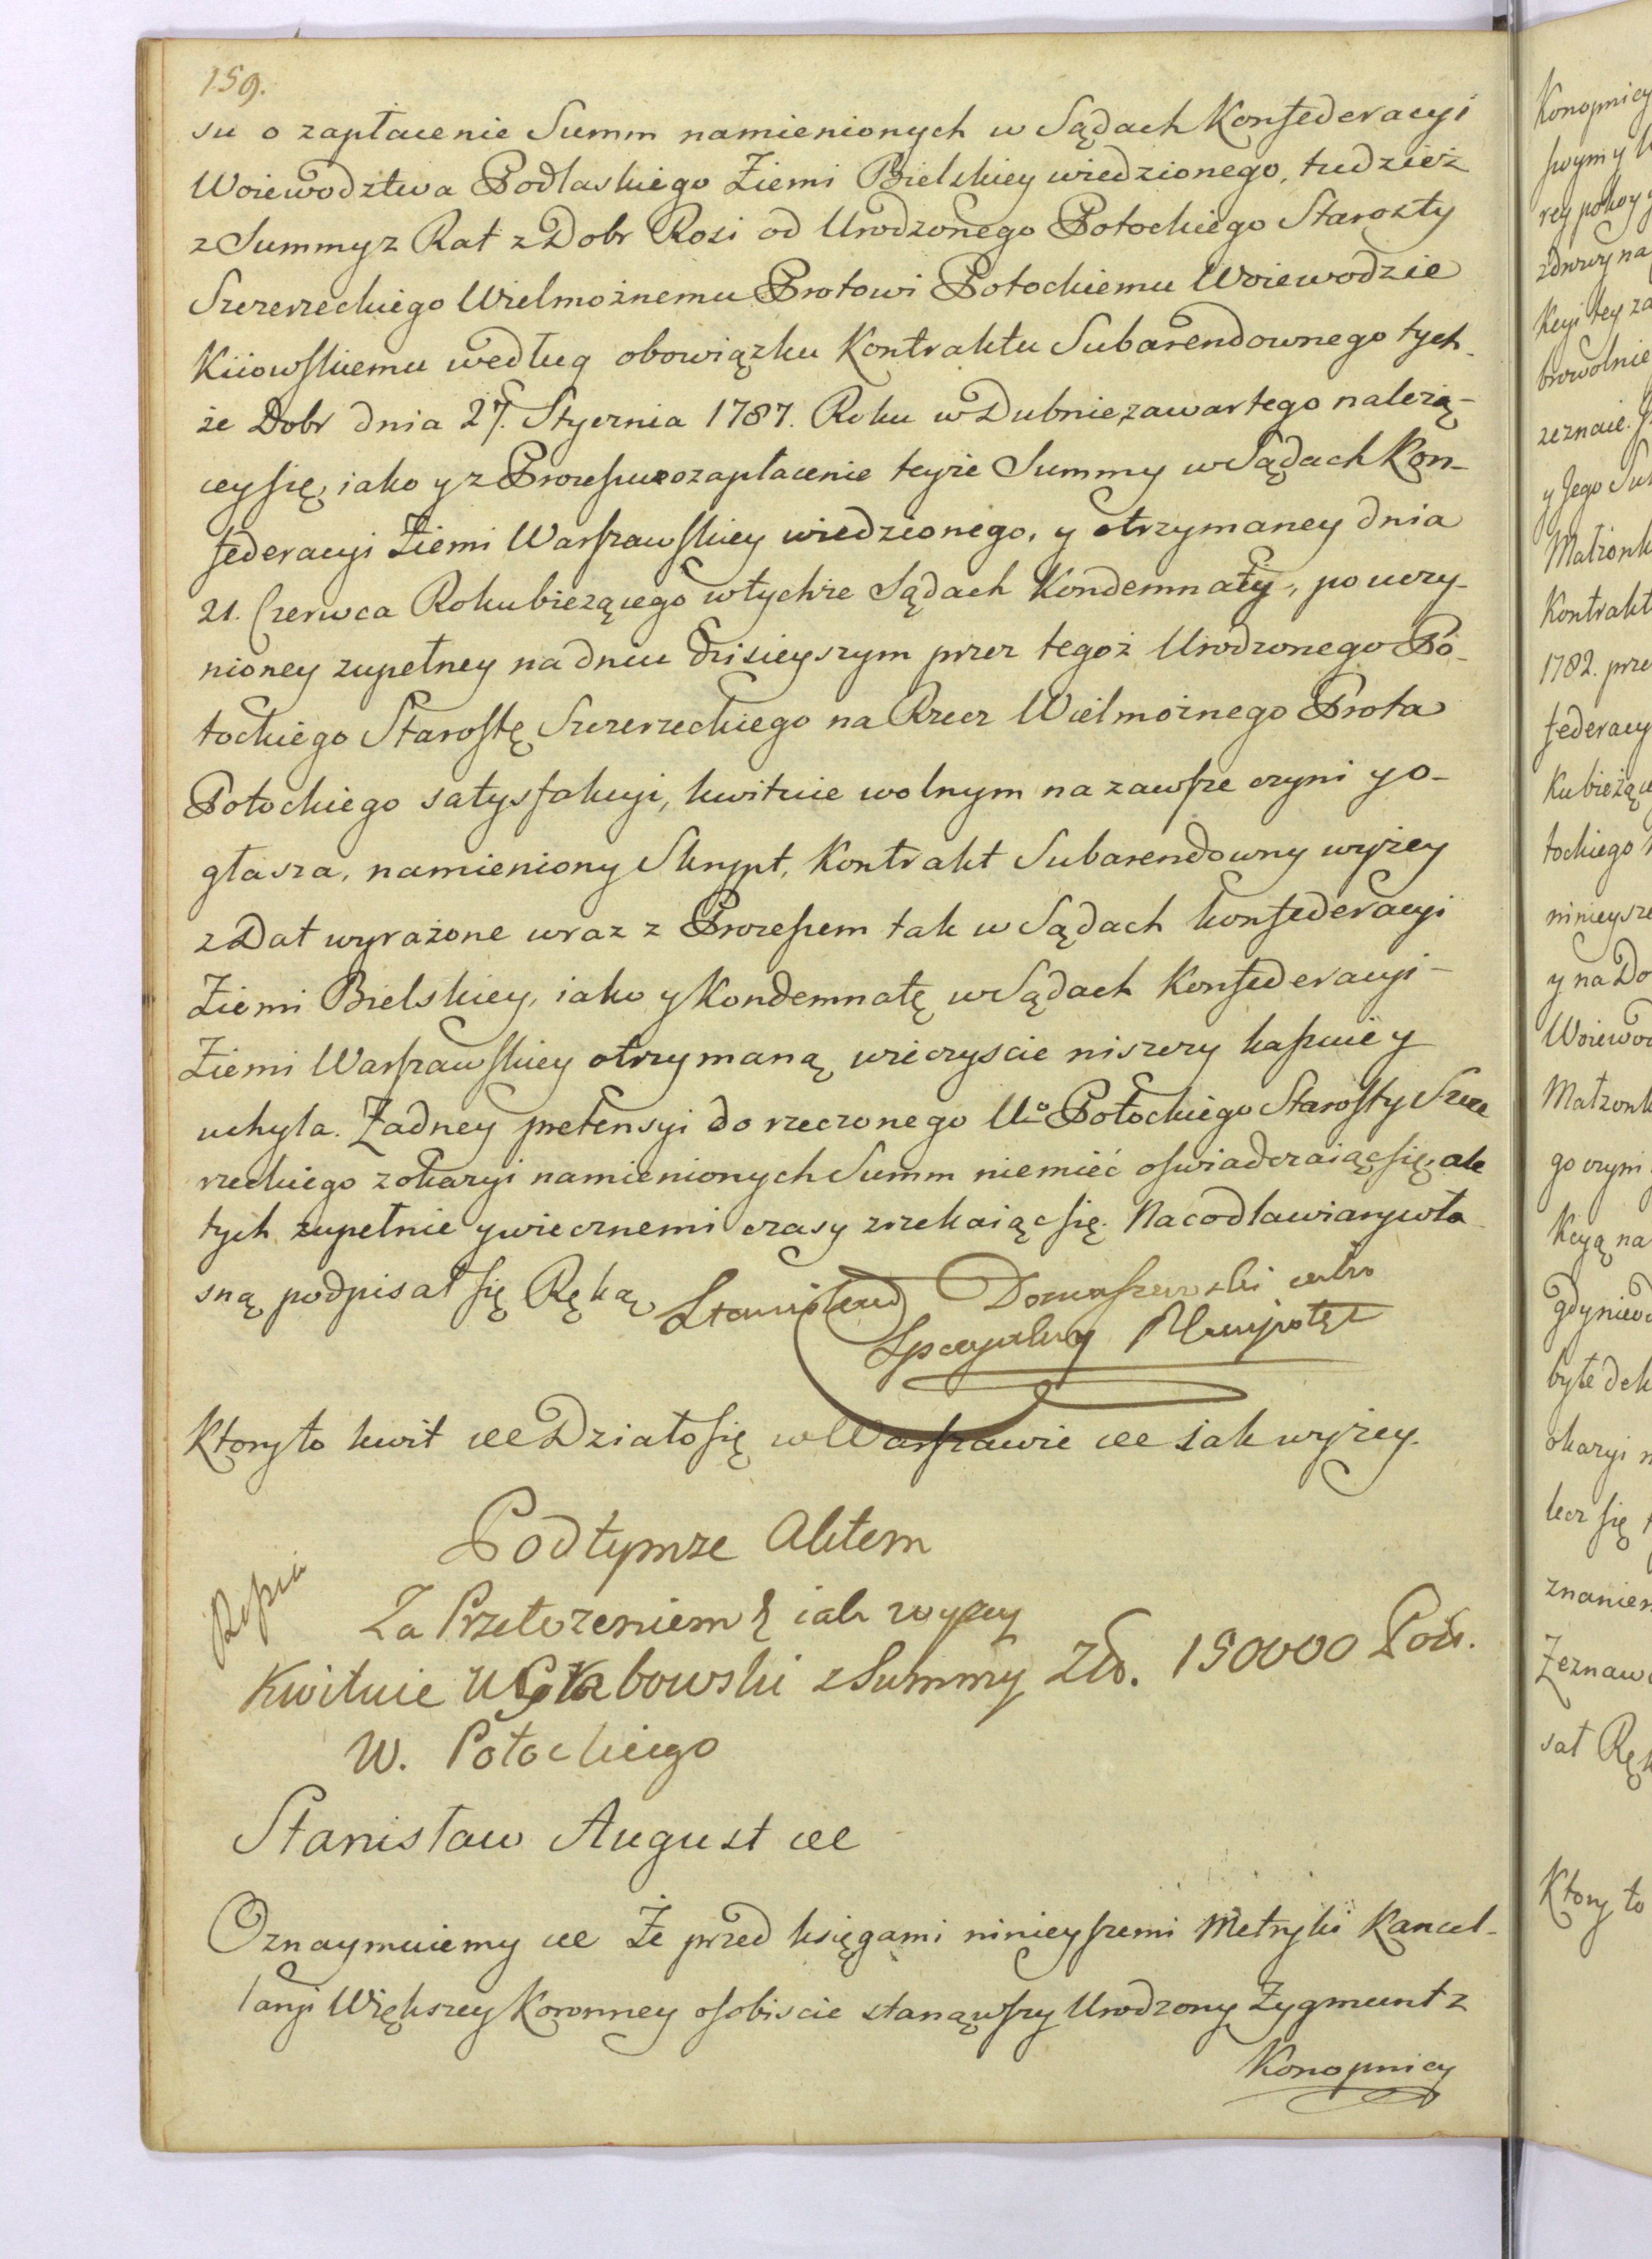 159.
su o zapłacenie Summ namienionych w Sądach Konfederacyi
Woiewodztwa Podlaskiego Ziemi Bielskiey wiedzionego, tudzież
z Summy z Rat z Dobr Rosi od Urodzonego Potockiego Starosty
Szczerzeckiego Wielmożnemu Protowi Potockiemu Woiewodzie
Kiiowskiemu według obowiązku Kontraktu Subarendownego tych-
że Dobr dnia 27. Stycznia 1787. Roku w Dubnie zawartego należą-
cey się, iako y z Processu o zapłacenie teyże Summy w Sądach Kon-
federacyi Ziemi Warszawskiey wiedzionego, y otrzymaney dnia
21. Czerwca Roku bieżącego w tychże Sądach Kondemnaty, po uczy-
nioney zupełney na dniu dzisieyszym przez tegoż Urodzonego Po-
tockiego Starostę Szczerzeckiego na Rzecz Wielmożnego Prota
Potockiego satysfakcyi, kwituie wolnym na zawsze czyni y o-
głasza, namieniony Skrypt, Kontrakt Subarendowny wyżey
z Dat wyrażone wraz z Processem tak w Sądach konfederacyi
Ziemi Bielskiey, iako y Kondemnatę w Sądach Konfederacyi-
Ziemi Warszawskiey otrzymaną wieczyscie niszczy kassuie y
uchyla. Żadney pretensyi do rzeczonego Uo Potockiego Starosty Szcze
rzeckiego z okazyi namienionych Summ niemieć oswiadczaiąc się, ale
tych zupełnie y wiecznemi czasy zrzekaiąc się. Na co dla wiary wła
sną podpisał się Ręką Stanisław Domaszewski
Specyalny Plenipotęt
Ktory to kwit &c Działo się w Warszawie &c iak wyżey.
Pod tymże Aktem
Za Przełożeniem iak wyżey
Kwituie U Grabowski z Summy Zł. 150000 Pol.
W. Potockiego
Stanisław August &c
Oznaymuiemy &c Że przed księgami ninieyszemi Metryki Kancel-
laryi Większey Koronney osobiscie stanąwszy Urodzony Zygmunt z
Konopnicy